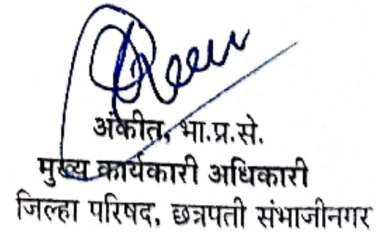 अंकीत, भा.प्र.से.
मुख्य कार्यकारी अधिकारी
जिल्हा परिषद, छत्रपती संभाजीनगर